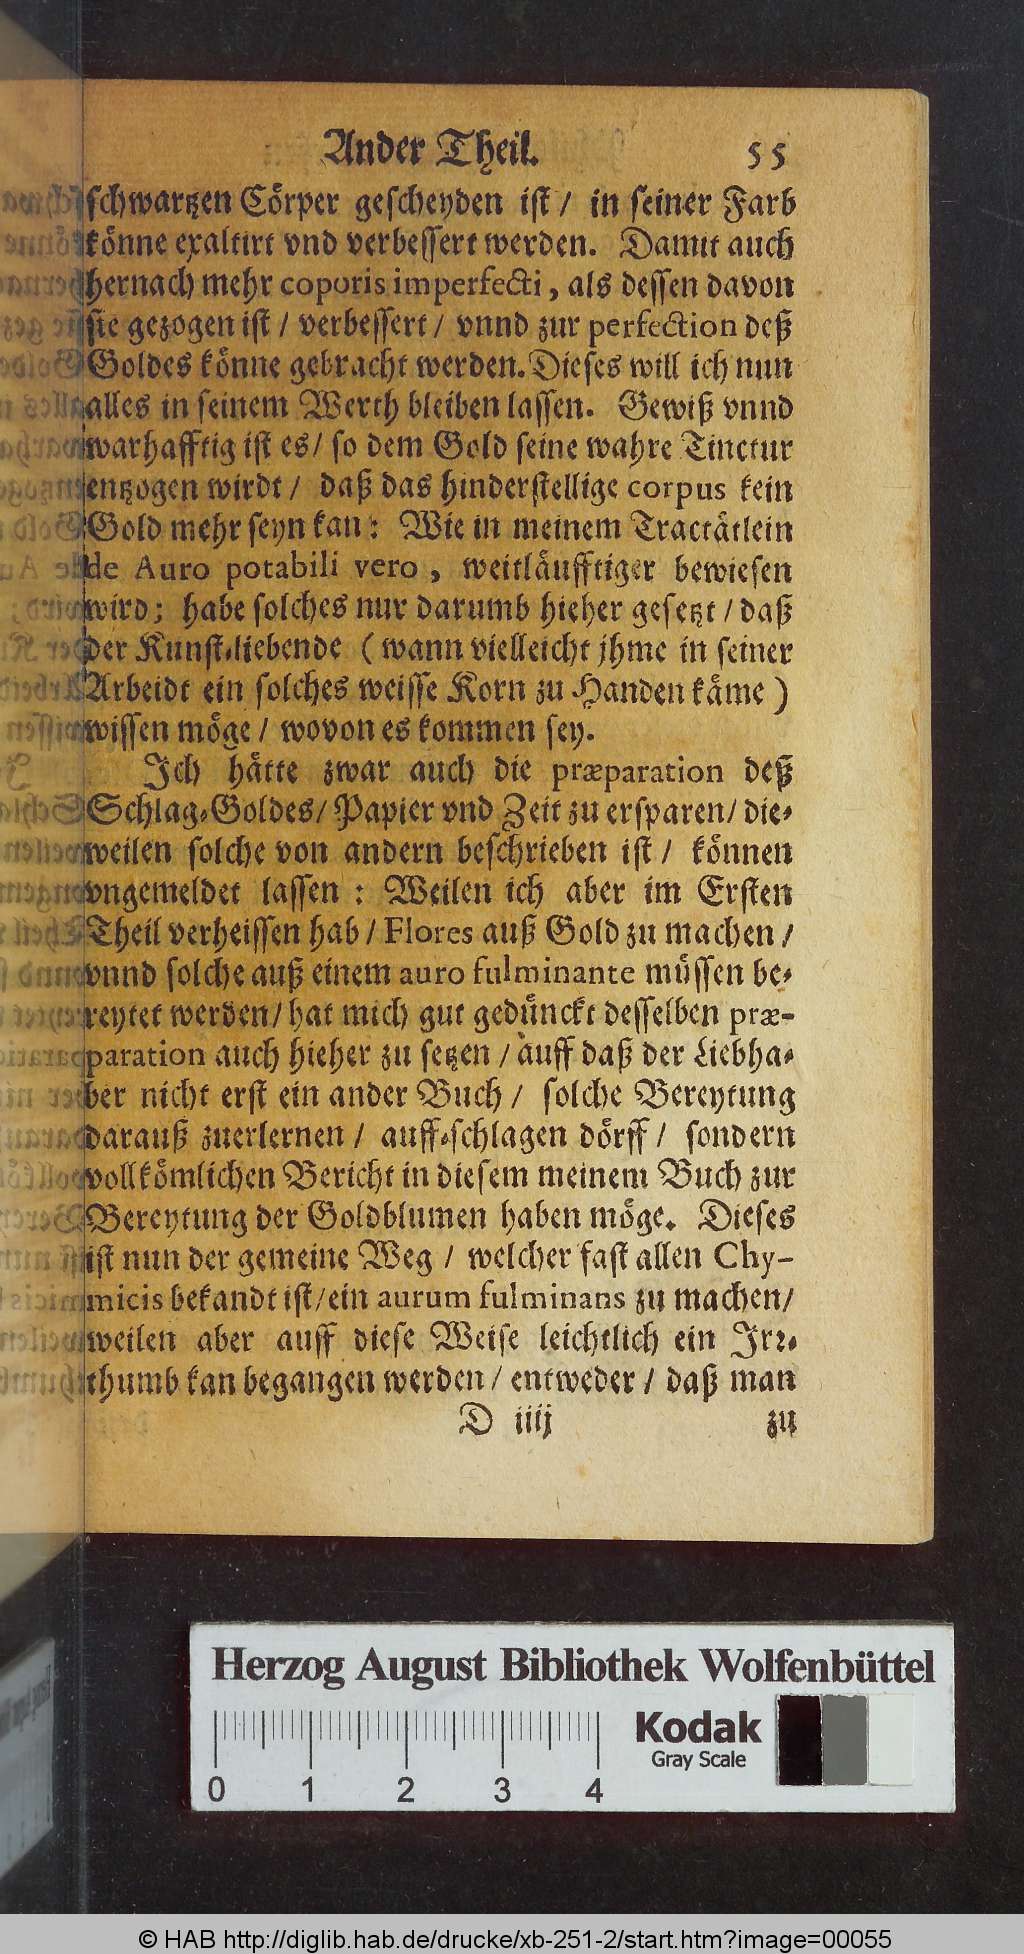 Ander Theil. 55
schwartzen Cörper gescheyden ist / in seiner Farb
könne exaltirt vnd verbessert werden. Damit auch
hernach mehr coporis imperfecti, als dessen davon
sie gezogen ist / verbessert / vnnd zur perfection deß
Goldes könne gebracht werden. Dieses will ich nun
alles in seinem Werth bleiben lassen. Gewiß vnnd
warhafftig ist es / so dem Gold seine wahre Tinctur
entzogen wirdt / daß das hinderstellige corpus kein
Gold mehr seyn kan: Wie in meinem Tractätlein
de Auro potabili vero, weitläufftiger bewiesen
wird; habe solches nur darumb hieher gesetzt / daß
der Kunst-liebende (wann vielleicht jhme in seiner
Arbeidt ein solches weisse Korn zu Handen käme)
wissen möge / wovon es kommen sey.
Ich hätte zwar auch die præparation deß
Schlag-Goldes / Papier vnd Zeit zu ersparen / die-
weilen solche von andern beschrieben ist / können
vngemeldet lassen: Weilen ich aber im Ersten
Theil verheissen hab / Flores auß Gold zu machen /
vnnd solche auß einem auro fulminante müssen be-
reytet werden / hat mich gut gedünckt desselben præ-
paration auch hieher zu setzen / auff daß der Liebha-
ber nicht erst ein ander Buch / solche Bereytung
darauß zuerlernen / auff-schlagen dörff / sondern
vollkömlichen Bericht in diesem meinem Buch zur
Bereytung der Goldblumen haben möge. Dieses
ist nun der gemeine Weg / welcher fast allen Chy-
micis bekandt ist / ein aurum fulminans zu machen /
weilen aber auff diese Weise leichtlich ein Irr-
thumb kan begangen werden / entweder / daß man
D iiij zu
Herzog August Bibliothek Wolfenbüttel
Kodak
Gray Scale
0 1 2 3 4
© HAB http://diglib.hab.de/drucke/xb-251-2/start.htm?image=00055